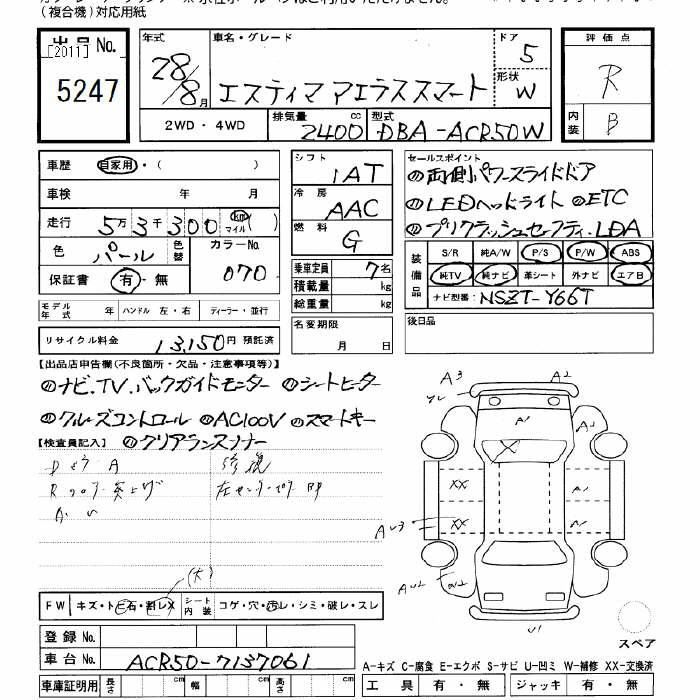 (複合機)対応用紙
出品No.
[2011]
5247
年式 28/8月
車名・グレード エスティマ アエラススマート
ドア 5
形状 W
評価点 R
内装 B
2WD・4WD
排気量 2400 cc
型式 DBA-ACR50W
車歴 自家用・( )
車検 年 月
走行 5万3千300 km マイル ( )
色 パール 色替 カラーNo. 070
保証書 有・無
モデル年式 年 ハンドル 左・右 ディーラー・並行
リサイクル料金 13,150円 預託済
シフト IAT
冷房 AAC
燃料 G
乗車定員 7名
積載量 kg
総重量 kg
名変期限 月 日
セールスポイント
両側パワースライドドア
LEDヘッドライト ETC
プリクラッシュセーフティ. LDA
装備品
S/R 純A/W P/S P/W ABS
純TV 純ナビ 革シート 外ナビ エアB
ナビ型番: NSZT-Y66T
後日品
【出品店申告欄(不良箇所・欠品・注意事項等)】
ナビ.TV.バックガイドモニター シートヒーター
クルーズコントロール AC100V スマートキー
【検査員記入】 クリアランスソナー
修復
A3 A2
A1 A1
XX A1
XX
AU3
U1
(大)
FW キズ・ト 石・割レX シート内装 コゲ・穴・汚レ・シミ・破レ・スレ
登録No.
車台No. ACR50-7137061
車庫証明用 長さ cm 幅 cm 高さ cm
スペア
A-キズ C-腐食 E-エクボ S-サビ U-凹ミ W-補修 XX-交換済
工具 有・無 ジャッキ 有・無